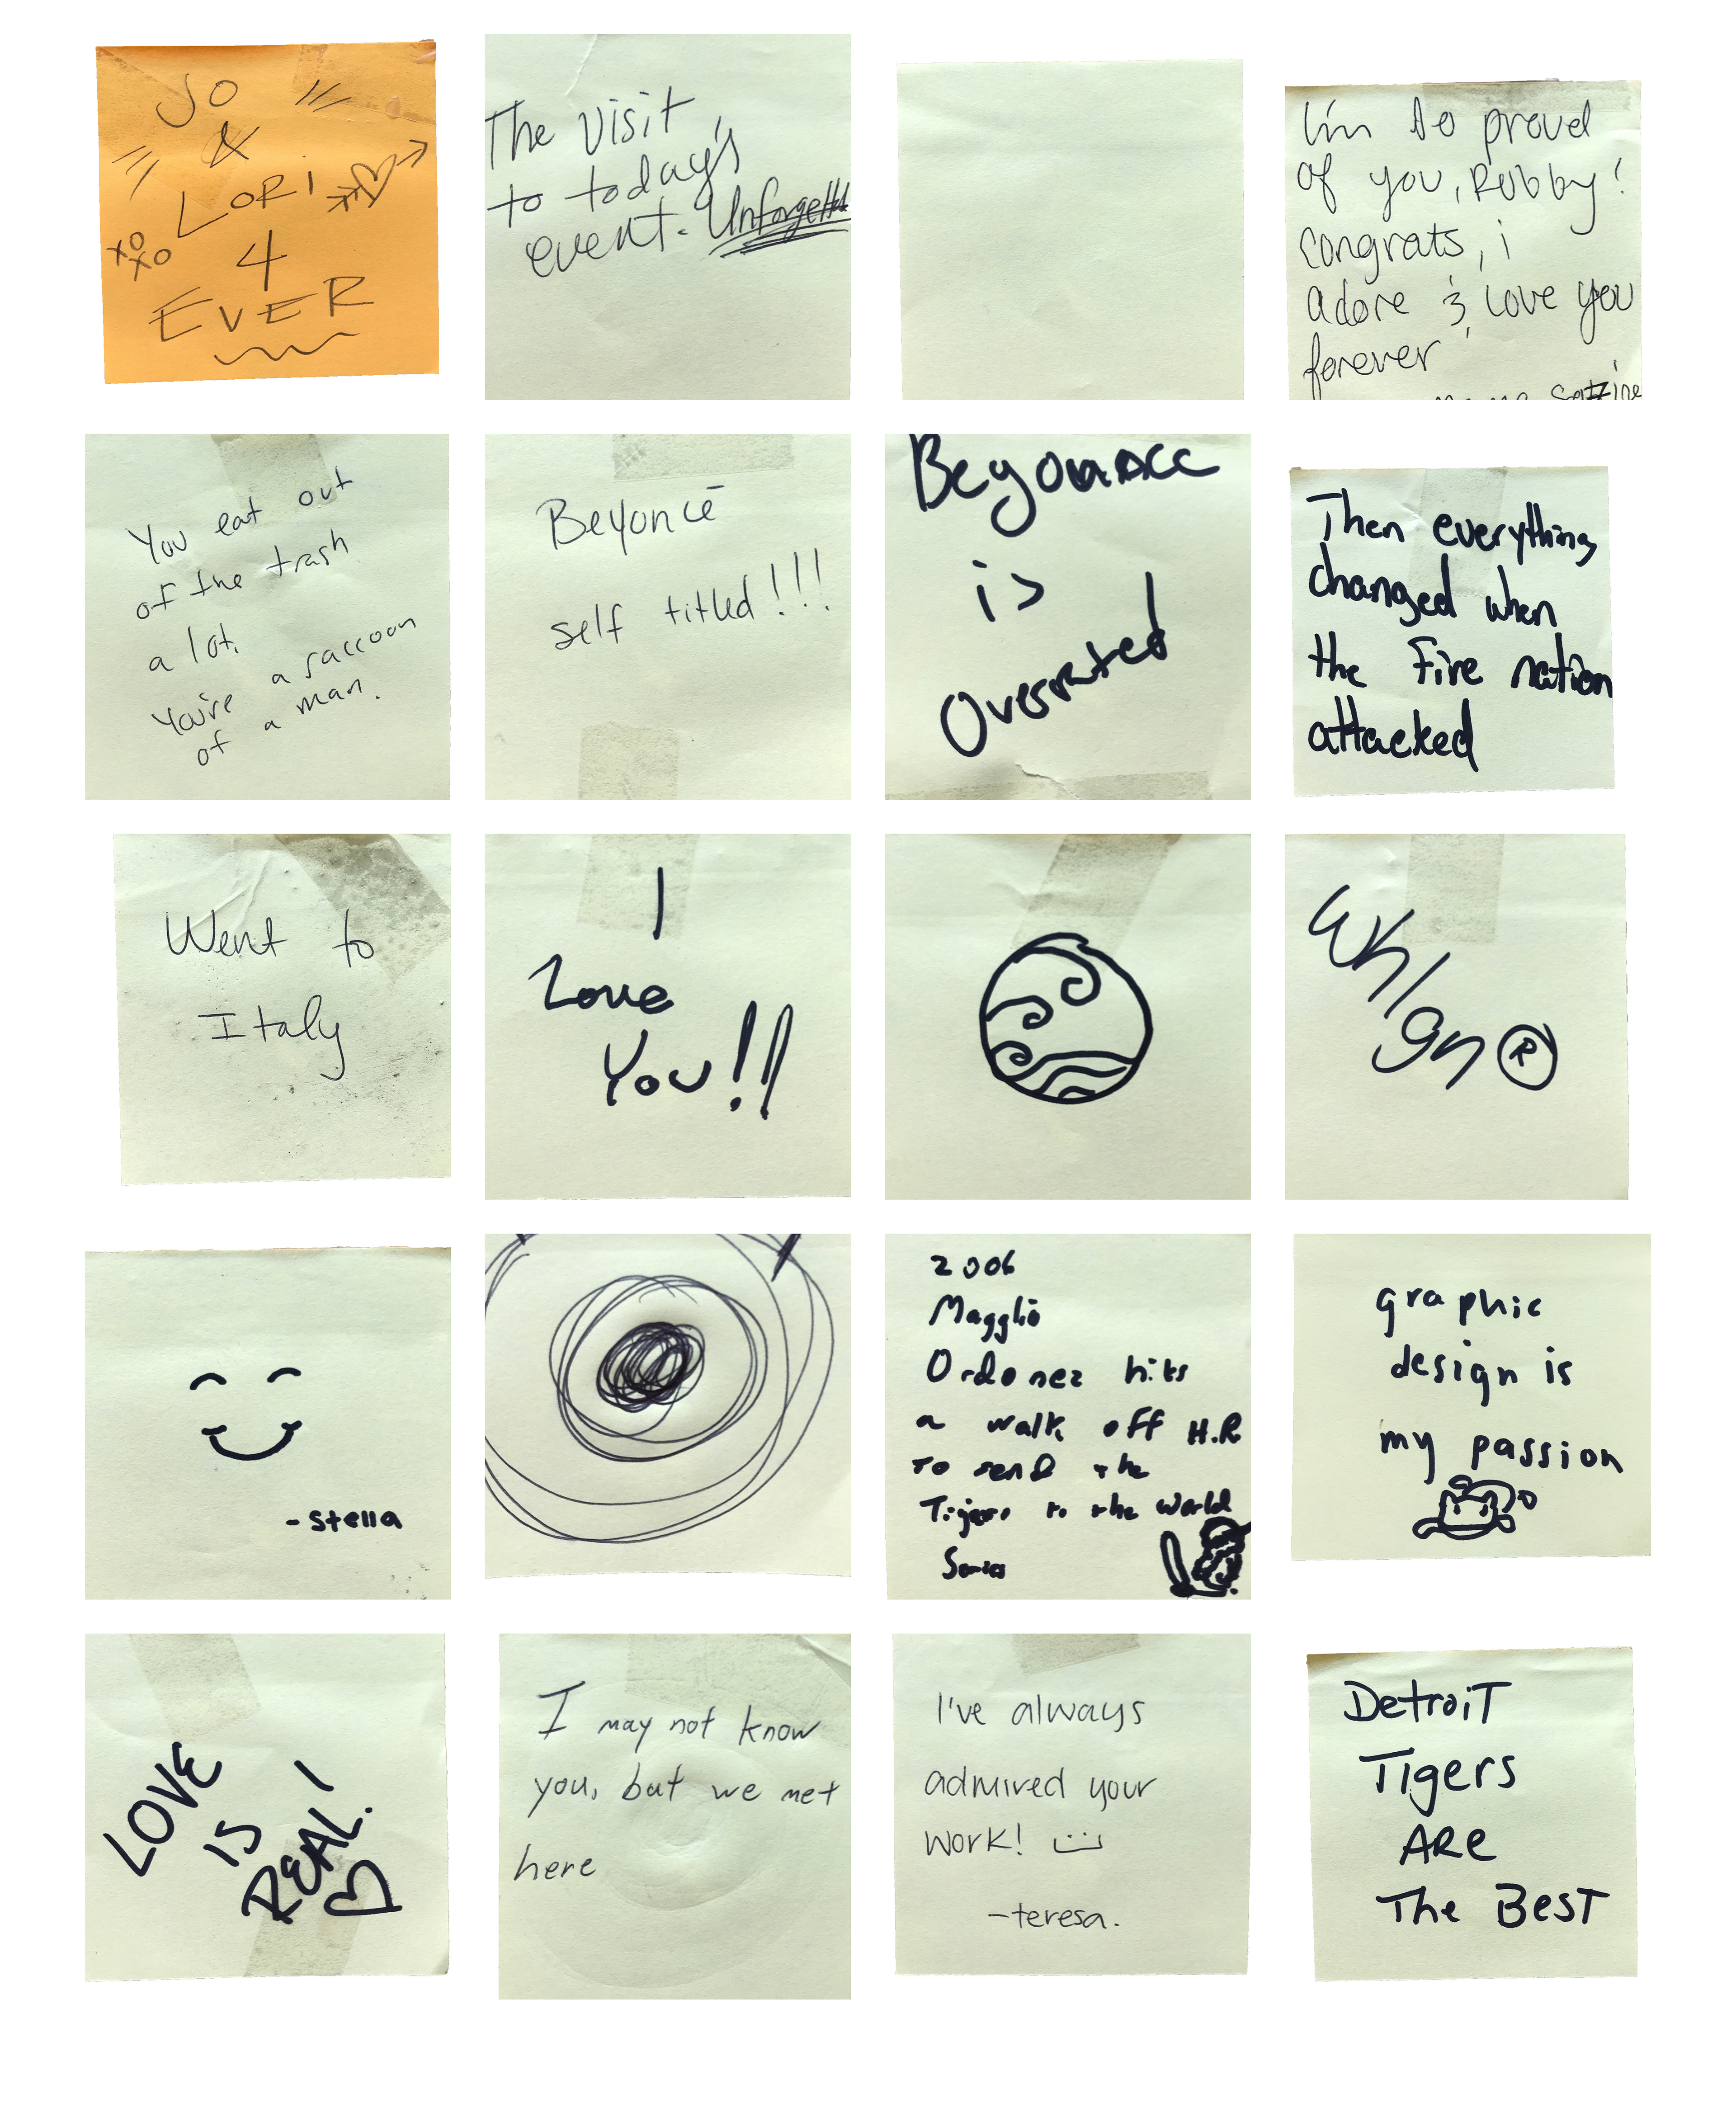 JO
&
LORI
XO
XO
4
EVER
The visit
to today's
event. Unforgettabl
I'm so proud
of you, Robby!
congrats, i
adore & love you
forever
You eat out
of the trash
a lot.
You're a raccoon
of a man.
Beyoncé
self titled!!!
Beyonce
is
Overrated
Then everything
changed when
the Fire nation
attacked
Went to
Italy
I
Love
You!!
®
-Stella
2006
Magglio
Ordonez hits
a walk off H.R
to send the
Tigers to the World
Series
graphic
design is
my passion
LOVE
IS
REAL!
I may not know
you, but we met
here
I've always
admired your
work!
-teresa.
DetroiT
Tigers
ARe
The BesT